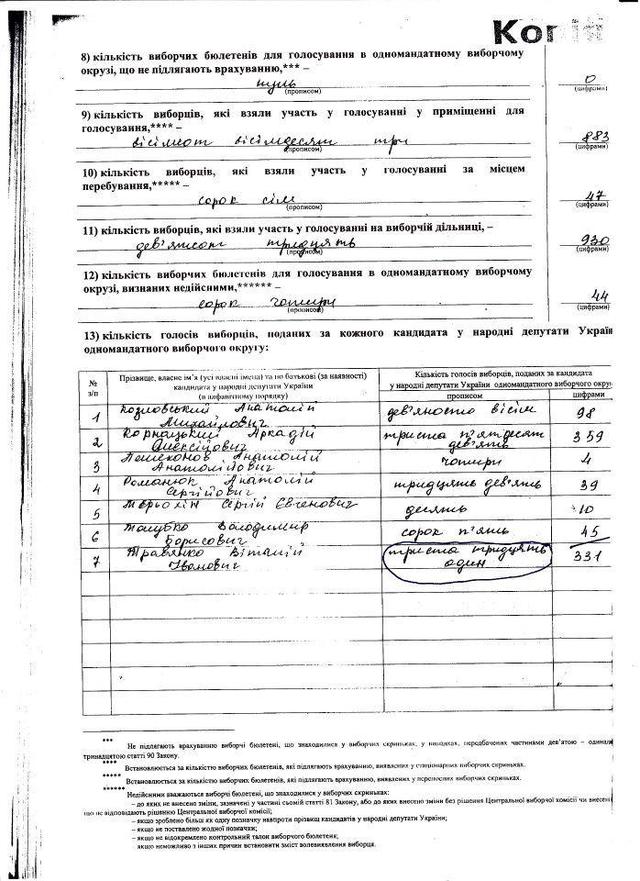 8) кількість виборчих бюлетенів для голосування в одномандатному виборчому
окрузі, що не підлягають врахуванню,*** –
нуль 0
(прописом) (цифрами)
9) кількість виборців, які взяли участь у голосуванні у приміщенні для
голосування,**** –
вісімсот вісімдесят три 883
(прописом) (цифрами)
10) кількість виборців, які взяли участь у голосуванні за місцем
перебування,***** –
сорок сім 47
(прописом) (цифрами)
11) кількість виборців, які взяли участь у голосуванні на виборчій дільниці, –
дев'ятсот тридцять 930
(прописом) (цифрами)
12) кількість виборчих бюлетенів для голосування в одномандатному виборчому
окрузі, визнаних недійсними,****** –
сорок чотири 44
(прописом) (цифрами)
13) кількість голосів виборців, поданих за кожного кандидата у народні депутати Україн
одномандатного виборчого округу:
№ з/п
Прізвище, власне ім'я (усі власні імена) та по батькові (за наявності)
кандидата у народні депутати України
(в алфавітному порядку)
Кількість голосів виборців, поданих за кандидата
у народні депутати України одномандатного виборчого окру
прописом цифрами
1 Козловський Анатолій Михайлович дев'яносто вісім 98
2 Корнацький Аркадій Олексійович триста п'ятдесят дев'ять 359
3 Анатолій Анатолійович чотири 4
4 Романюк Анатолій Сергійович тридцять дев'ять 39
5 Сергій Євгенович десять 10
6 Володимир Борисович сорок п'ять 45
7 Травянко Віталій Іванович триста тридцять один 331
***
Не підлягають врахуванню виборчі бюлетені, що знаходилися у виборчих скриньках, у випадках, передбачених частинами дев'ятою – одинад
тринадцятою статті 90 Закону.
****
Встановлюється за кількістю виборчих бюлетенів, які підлягають врахуванню, виявлених у стаціонарних виборчих скриньках.
*****
Встановлюється за кількістю виборчих бюлетенів, які підлягають врахуванню, виявлених у переносних виборчих скриньках.
******
Недійсними вважаються виборчі бюлетені, що знаходилися у виборчих скриньках:
– до яких не внесено зміни, зазначені у частині сьомій статті 81 Закону, або до яких внесено зміни без рішення Центральної виборчої комісії чи внесені
що не відповідають рішенню Центральної виборчої комісії;
– якщо зроблено більш як одну позначку навпроти прізвищ кандидатів у народні депутати України;
– якщо не поставлено жодної позначки;
– якщо не відокремлено контрольний талон виборчого бюлетеня;
– якщо неможливо з інших причин встановити зміст волевиявлення виборця.